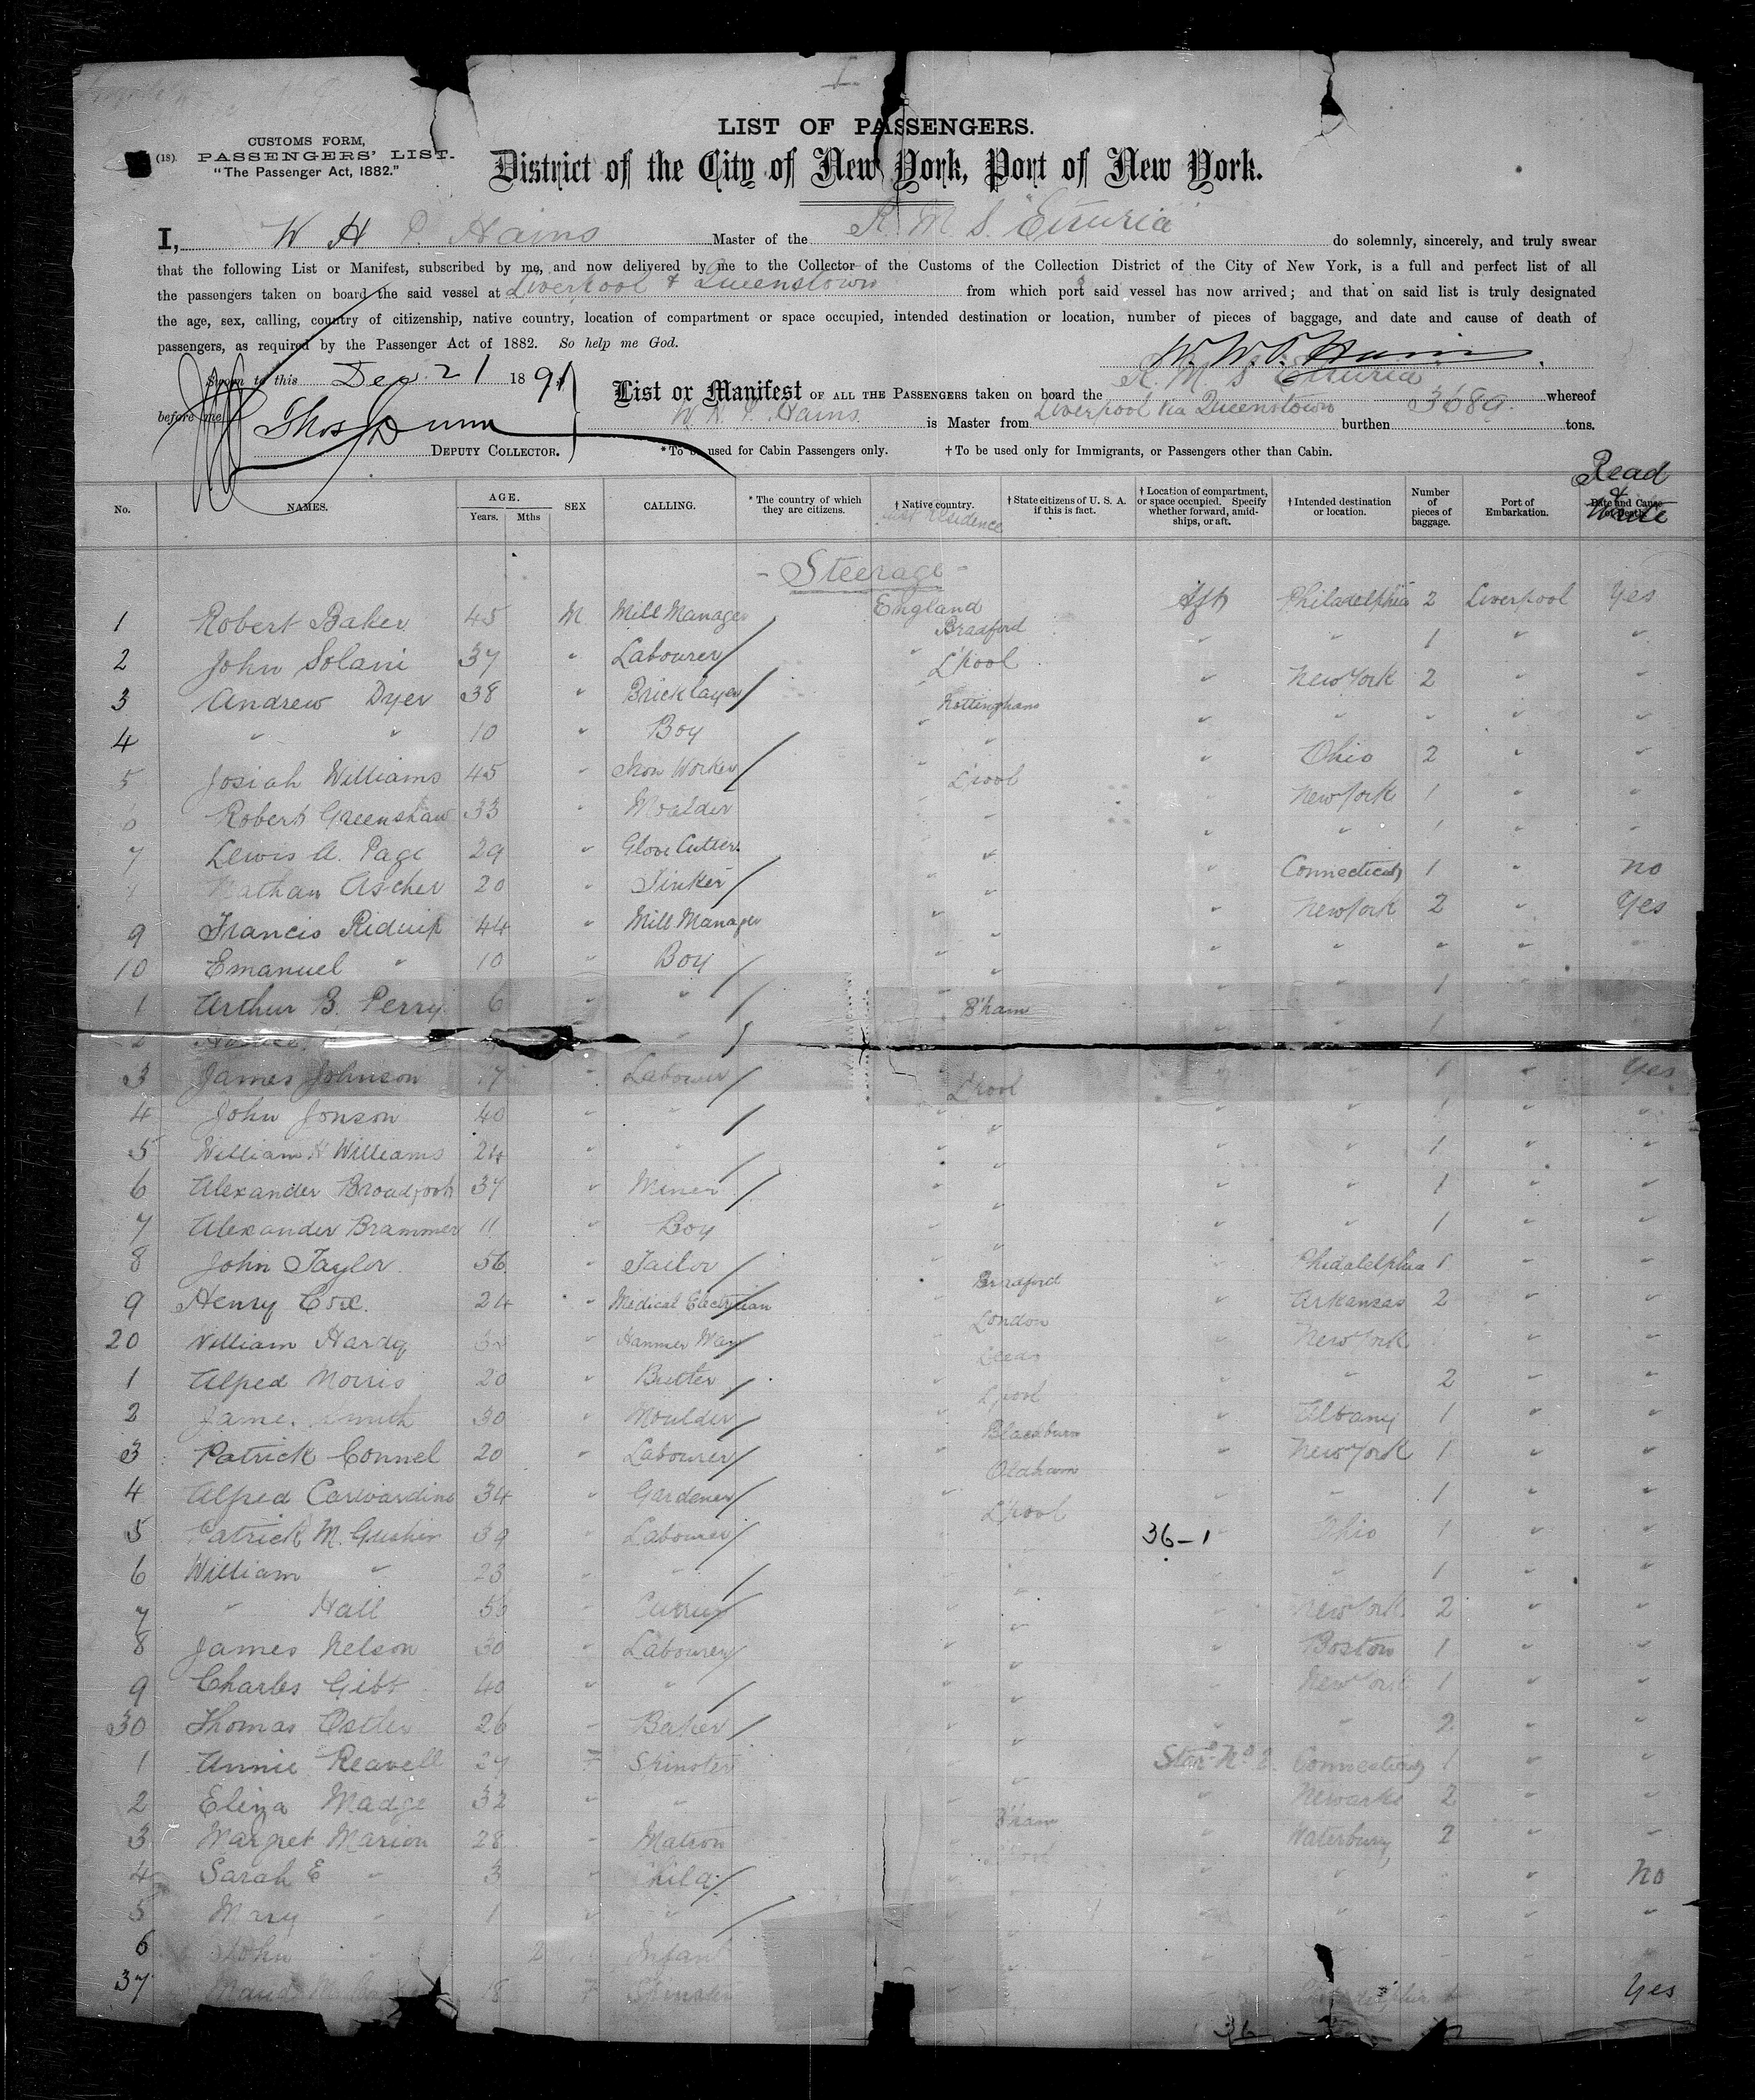 LIST OF PASSENGERS.
(18). CUSTOMS FORM,
PASSENGERS' LIST.
"The Passenger Act, 1882."
District of the City of New York, Port of New York.
I, W H P. Hains Master of the R. M. S. "Etruria" do solemnly, sincerely, and truly swear
that the following List or Manifest, subscribed by me, and now delivered by me to the Collector of the Customs of the Collection District of the City of New York, is a full and perfect list of all
the passengers taken on board the said vessel at Liverpool & Queenstown from which port said vessel has now arrived; and that on said list is truly designated
the age, sex, calling, country of citizenship, native country, location of compartment or space occupied, intended destination or location, number of pieces of baggage, and date and cause of death of
passengers, as required by the Passenger Act of 1882. So help me God.
Sworn to this Dec. 21 1891
before me
Thos Dunn
DEPUTY COLLECTOR.
List or Manifest OF ALL THE PASSENGERS taken on board the R. M. S Etruria whereof
W. H. P. Hains is Master from Liverpool via Queenstown burthen 3689. tons.
* To be used for Cabin Passengers only. † To be used only for Immigrants, or Passengers other than Cabin.
Read & Write
No. NAMES. AGE. Years. Mths SEX CALLING. * The country of which they are citizens. † Native country. last residence † State citizens of U. S. A. if this is fact. † Location of compartment, or space occupied. Specify whether forward, amid-ships, or aft. † Intended destination or location. Number of pieces of baggage. Port of Embarkation. Date and Cause of Death.
- Steerage -
1 Robert Baker 45 M Mill Manager England Bradford Aft Philadelphia 2 Liverpool Yes
2 John Solani 37 " Labourer " L'pool " " 1 " "
3 Andrew Dyer 38 " Bricklayer Nottingham " New York 2 " "
4 " " 10 " Boy " " " " " " "
5 Josiah Williams 45 " Iron Worker " L'pool " Ohio 2 " "
6 Robert Greenshaw 33 " Moulder " " New York 1 " "
7 Lewis A. Page 29 " Glove Cutter " " " 1 " "
Nathan Ascher 20 " Tinker " " " Connecticut 1 " No
9 Francis 44 " Mill Manager " " " New York 2 " Yes
10 Emanuel " 10 " Boy " " " " " "
1 Arthur B. Perry 6 " " B'ham " " 1
2 " 1
3 James Johnson 17 " Labourer " L'pool " " 1 " Yes
4 John Jonson 40 " " " " " " 1 " "
5 William H Williams 24 " " " " " " 1 " "
6 Alexander Broadfoot 37 " Miner " " " " 1 " "
7 Alexander Brammer 11 " Boy " " " " 1 " "
8 John Taylor 56 " Tailor Bradford Philadelphia 1 " "
9 Henry Cox. 24 " Medical Electrician London " Arkansas 2 " "
20 William Hardy " Hammer Man " Leeds " New York " "
1 Alfred Morris 20 " Butler " L'pool " " 2 " "
2 James Smith 30 " Moulder " Blackburn " Albany 1 " "
3 Patrick Connel 20 " Labourer " Oldham " New York 1 " "
4 Alfred Carwardine 34 " Gardener " L'pool " " 1 " "
5 Patrick 39 " Labourer 36-1 Ohio 1 " "
6 William " 23 " " " " 1 " "
7 " Hall " Currier " " New York 2 " "
8 James Nelson 30 " Labourer " " " Boston 1 " "
9 Charles Gibb 40 " " " " New York 1 " "
30 Thomas Ostler 26 " Baker " " " " 2 " "
1 Annie Reavell 27 F Spinster " " No 2. Connecticut 1 " "
2 Eliza Madge 32 " " " B'ham " Newark 2 " "
3 Margret Marion 28 " Matron " " Waterbury 2 " "
4 Sarah E " 3 " Child " " " No
5 Mary " 1 " " " " "
6 John " 2 Infant " " "
37 Maud 18 F Spinster Philadelphia Yes
36